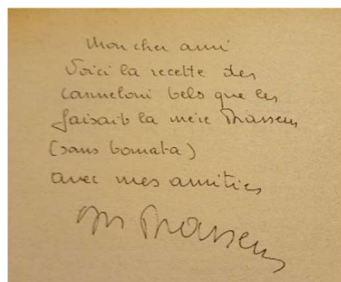 Mon cher ami
Voici la recette des
canneloni tels que les
faisait la mère
(sans tomata)
avec mes amitiés